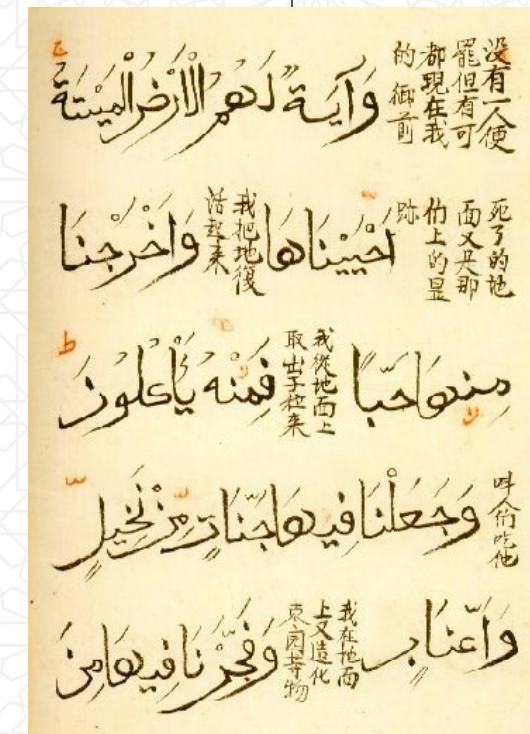 没有一人便罷但有可都現在我的御前 وَآيَةٌ لَهُمُ الْأَرْضُ الْمَيْتَةُ
死了的地面又是那们上的显跡 أَحْيَيْنَاهَا 我把地復活起来 وَأَخْرَجْنَا
مِنْهَا حَبًّا 我從地面上取出子粒来 فَمِنْهُ يَأْكُلُونَ
呌人们吃他 وَجَعَلْنَا فِيهَا جَنَّاتٍ مِنْ نَخِيلٍ
وَأَعْنَابٍ 我在地面上又造化東园等物 وَفَجَّرْنَا فِيهَا مِنَ